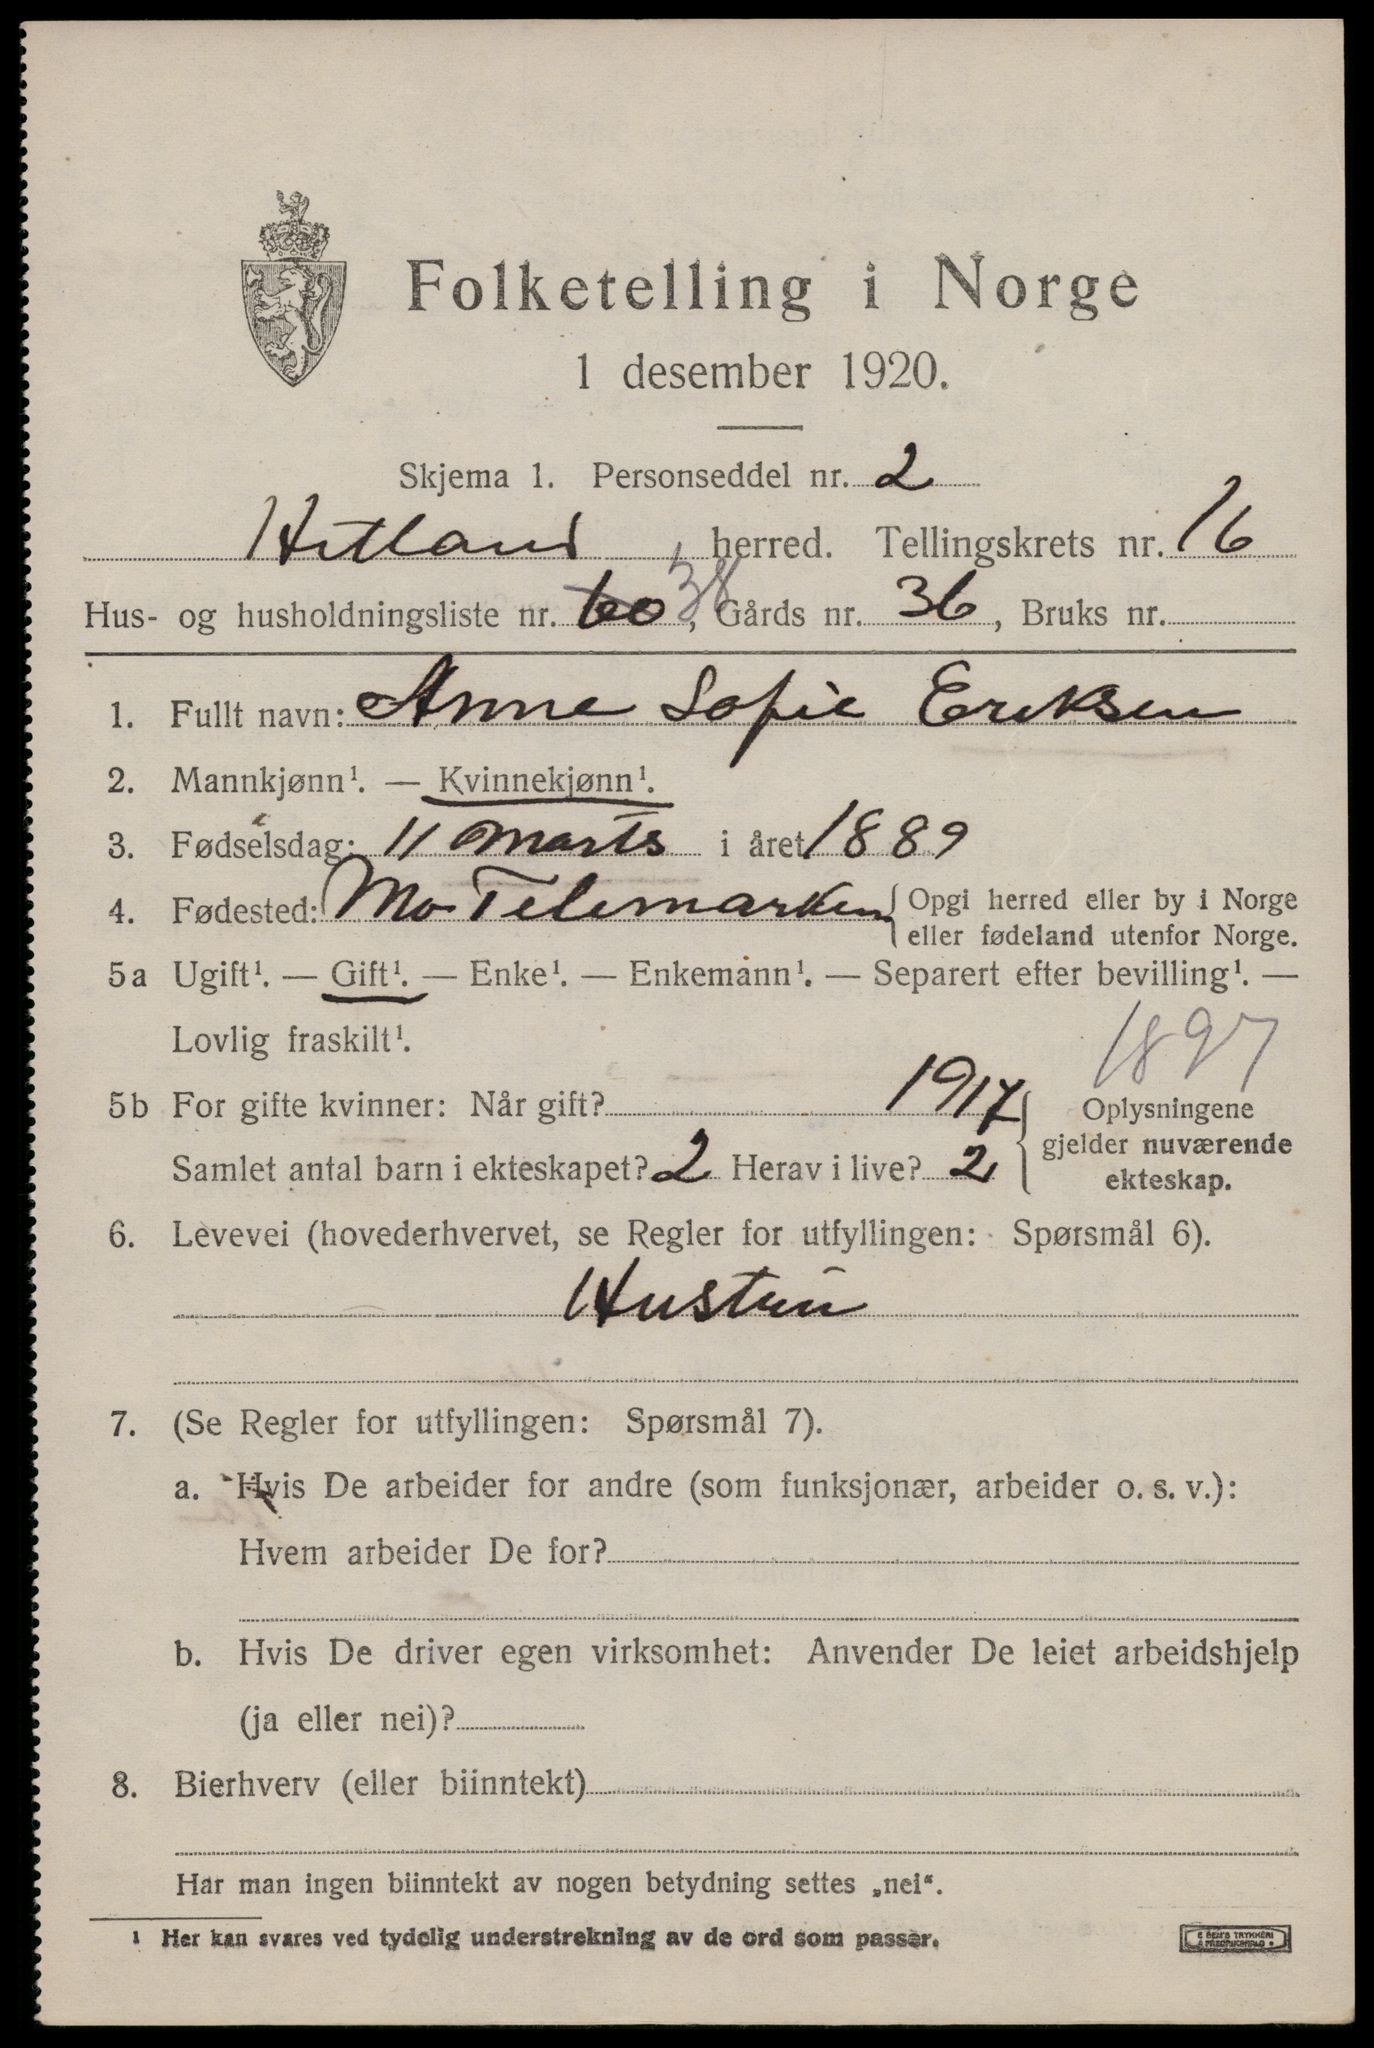 Folketelling i Norge
1 desember 1920.
Skjema 1. Personseddel nr. 2
Hetland herred. Tellingskrets nr. 16
Hus- og husholdningsliste nr. 60 38, Gårds nr. 36, Bruks nr.
1. Fullt navn: Anne Sofie Eriksen
2. Mannkjønn¹. — Kvinnekjønn¹.
3. Fødselsdag: 11 Marts i året 1889
4. Fødested: Mo Telemarken {Opgi herred eller by i Norge
eller fødeland utenfor Norge.
5a Ugift¹. — Gift¹. — Enke¹. — Enkemann¹. — Separert efter bevilling¹. —
Lovlig fraskilt¹.
1897
5b For gifte kvinner: Når gift? 1917 } Oplysningene
gjelder nuværende
Samlet antal barn i ekteskapet? 2 Herav i live? 2
ekteskap.
6. Levevei (hovederhvervet, se Regler for utfyllingen: Spørsmål 6).
Hustru
7. (Se Regler for utfyllingen: Spørsmål 7).
a. Hvis De arbeider for andre (som funksjonær, arbeider o. s. v.):
Hvem arbeider De for?
b. Hvis De driver egen virksomhet: Anvender De leiet arbeidshjelp
(ja eller nei)?
8. Bierhverv (eller biinntekt)
Har man ingen biinntekt av nogen betydning settes „nei“.
¹ Her kan svares ved tydelig understrekning av de ord som passer.
E SEM'S TRYKKERI
FREDRIKSHALD